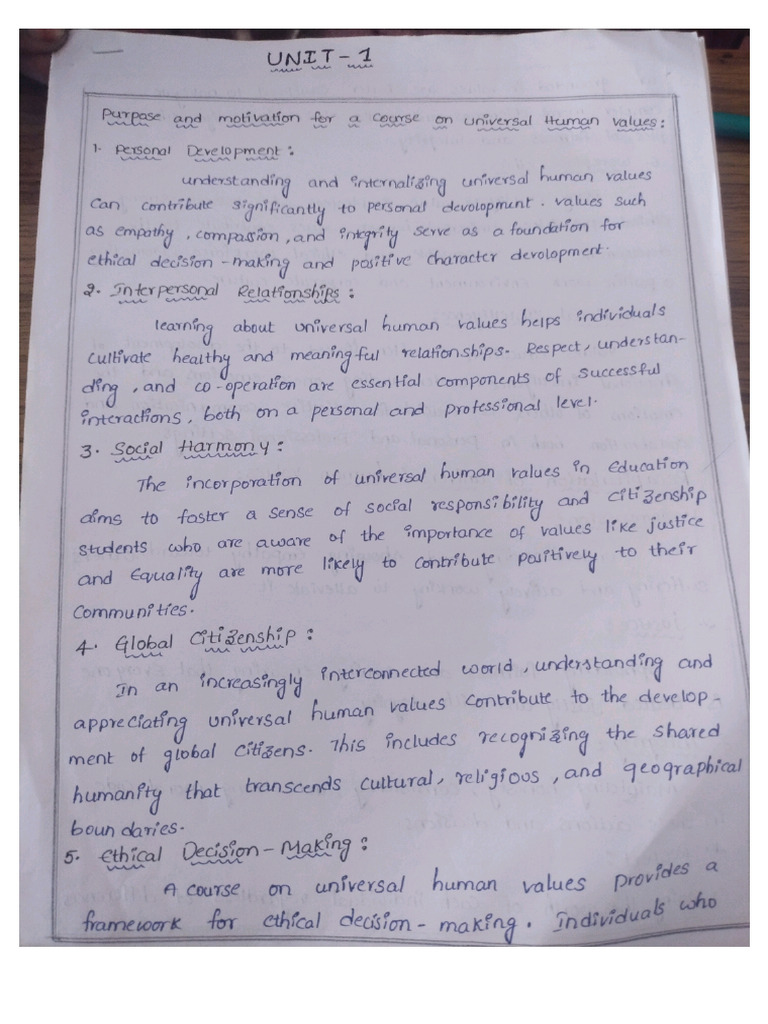 UNIT-1
Purpase and motivation for a course on universal Human values:
1. Personal Development:
understanding and internalizing universal human values
can contribute significantly to personal devolopment. values such
as empathy, compassion, and integrity serve as a foundation for
ethical decision-making and positive character devolopment.
2. Interpersonal Relationships:
learning about universal human values helps individuals
cultivate healthy and meaningful relationships. Respect, understan-
ding, and co-operation are essential components of successful
interactions, both on a personal and professional level.
3. Social Harmony:
The incorporation of universal human values in Education
aims to foster a sense of social responsibility and citizenship
students who are aware of the importance of values like justice
and Equality are more likely to contribute positively to their
communities.
4. Global Citizenship:
In an increasingly interconnected world, understanding and
appreciating universal human values contribute to the develop-
ment of global citizens. This includes recognizing the shared
humanity that transcends cultural, religious, and geographical
boundaries.
5. Ethical Decision-Making:
A course on universal human values provides a
framework for ethical decision-making. Individuals who